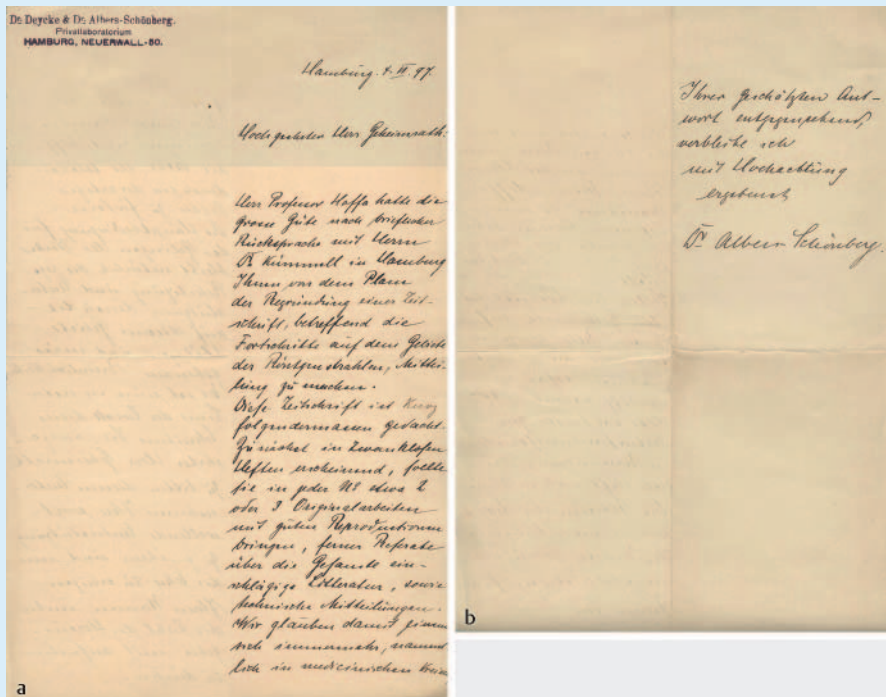 Dr. Deycke & Dr. Albers-Schönberg.
Privatlaboratorium
HAMBURG, NEUERWALL-50.
Hamburg. 4. II. 97.
Hochgeehrter Herr Geheimrath:
Herr Professor Hoffa hatte die
grosse Güte nach brieflicher
Rücksprache mit Herrn
Dr. Kümmell in Hamburg
Ihnen von dem Plane
der Begründung einer Zeit-
schrift, betreffend die
Fortschritte auf dem Gebiete
der Röntgenstrahlen, Mitthei-
lung zu machen.
Diese Zeitschrift ist kurz
folgendermassen gedacht.
Zunächst in zwanklosen
Heften erscheinend, sollte
sie in jeder No etwa 2
oder 3 Originalarbeiten
mit guten Reproductionen
bringen, ferner Referate
über die Gesamte ein-
schlägige Litteratur, sowie
technische Mittheilungen.
Wir glauben damit einem
sich immermehr, nament
lich in medicinischen Kreisen
a
Ihrer geschätzten Ant-
wort entgegensehend,
verbleibe ich
mit Hochachtung
ergebenst
Dr. Albers Schönberg.
b